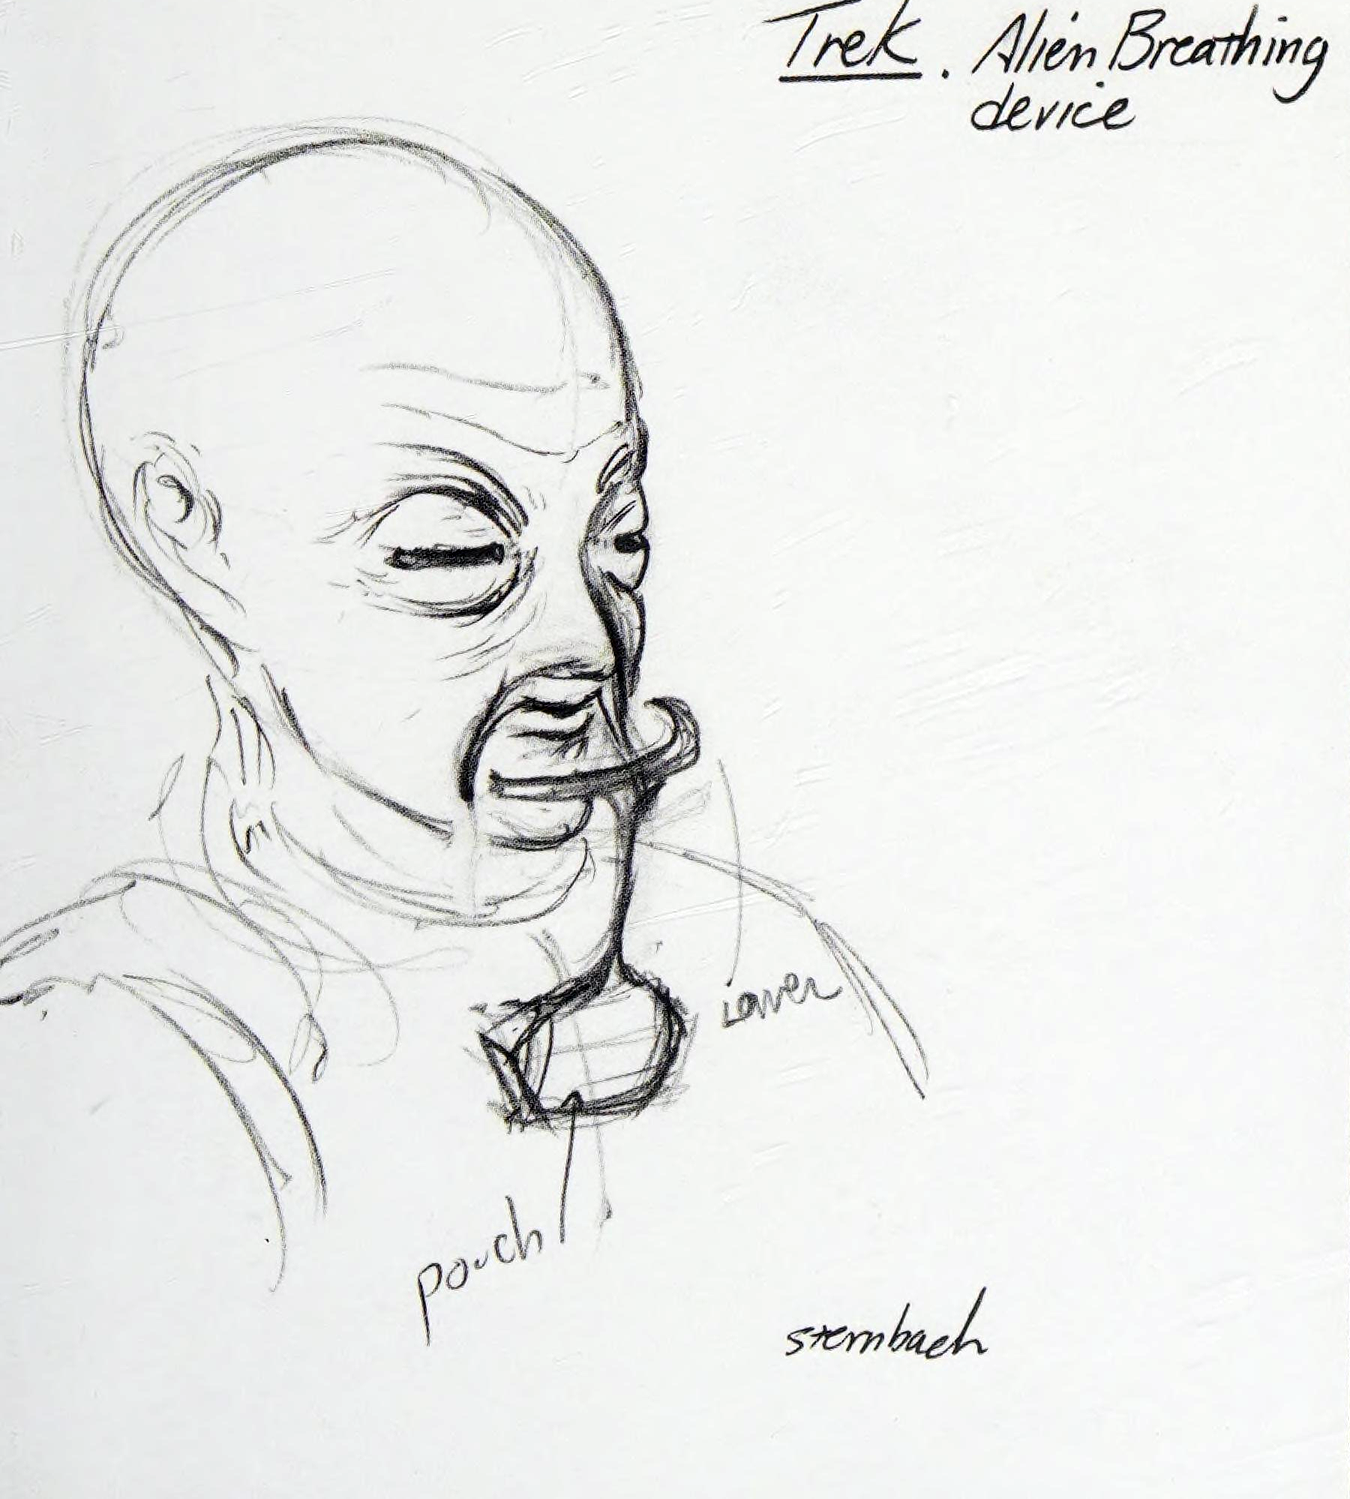 Trek. Alien Breathing
device
pouch
sternbach